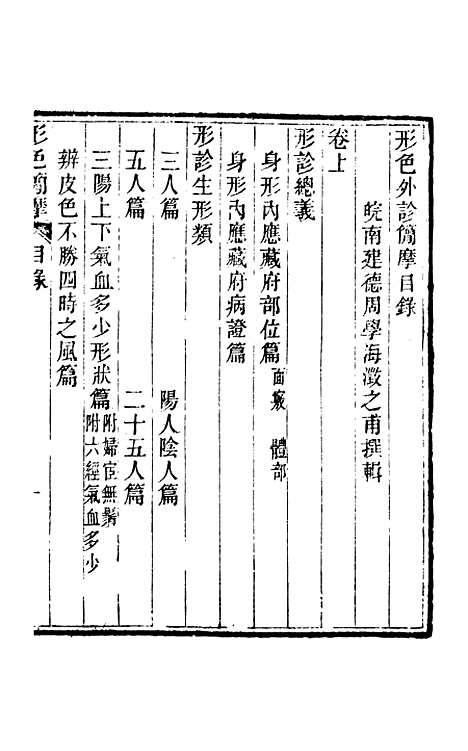 形色外診簡摩目錄
皖南建德周學海澂之甫撰輯
卷上
形診總義
身形內應藏府部位篇 面竅 體部
身形內應藏府病證篇
形診生形類
三人篇 陽人陰人篇
五人篇 二十五人篇
三陽上下氣血多少形狀篇 附婦宦無鬚 附六經氣血多少
辨皮色不勝四時之風篇
形色簡摩 目錄 一